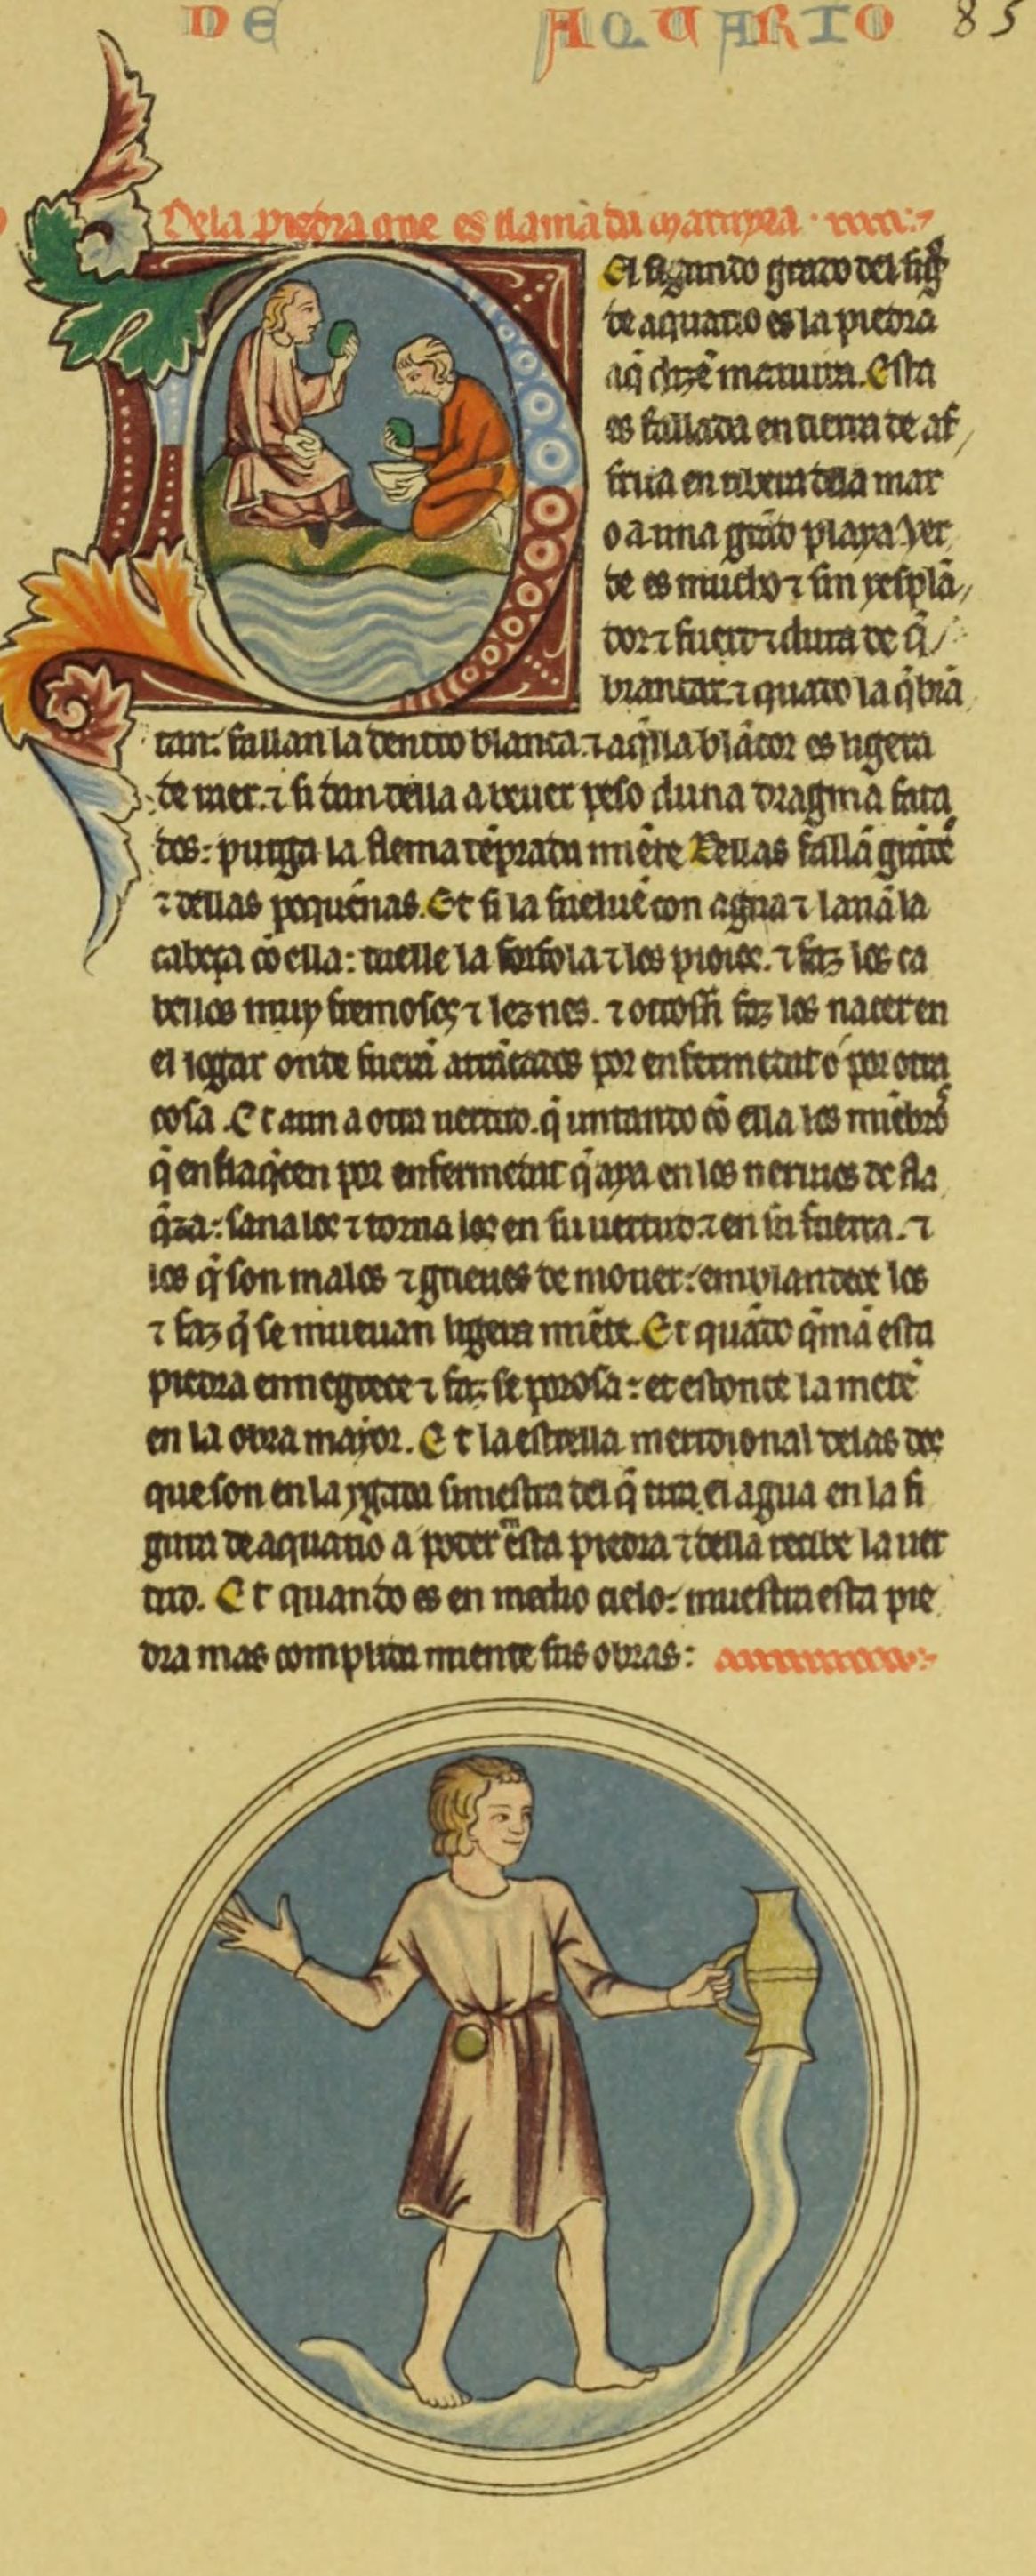 DE AQUARIO 85
Dela piedra que es llamada
El segundo grado del sig̃
de aquario es la piedra
aq̃ dizẽ Esta
es fallada en tierra de af
frica en ribera dela mar
o a una grãd playa Ver
de es mucho ⁊ sin resplã
dor ⁊ fuert ⁊ dura de q̃
brantar. ⁊ quãdo la q̃brã
tan: fallan la dentro blanca. ⁊ aq̃lla blãcor es ligera
de ⁊ si dan della a beuer peso duna dragma fata
dos: purga la flema tẽprada miẽte Dellas fallã grãdẽ
⁊ dellas pequenas. Et si la sueluẽ con agua ⁊ lauã la
cabeça cõ ella: tuelle la ⁊ los piojos. ⁊ faz los ca
bellos muy fremosos ⁊ leznes. ⁊ otrossi faz los nacer en
el logar onde fuerã arrãcados por enfermedat o por otra
cosa. Et aun a otra uertud. q̃ untando cõ ella los miẽbros
q̃ enflaq̃cen por enfermedat q̃ aya en los neruios de fla
q̃za: sana los ⁊ torna los en su uertud. ⁊ en su fuerça. ⁊
los q̃ son malos ⁊ grieues de mouer: emblandece los
⁊ faz q̃ se mueuan ligera miẽte. Et quãdo q̃mã esta
piedra ennegrece ⁊ faz se porosa: et estonce la metẽ
en la obra mayor. Et la estrella meridional delas dos
que son en la yjada siniestra del q̃ tura el agua en la fi
gura de aquario a poder en esta piedra ⁊ della recibe la uer
tud. Et quando es en medio cielo: muestra esta pie
dra mas complida miente sus obras: